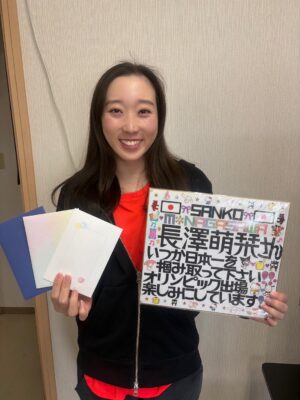 SANKO
NAGASAWA
長澤萌恭加
いつか日本一を
掴み取って下さい
オリンピック出場
楽しみにしています